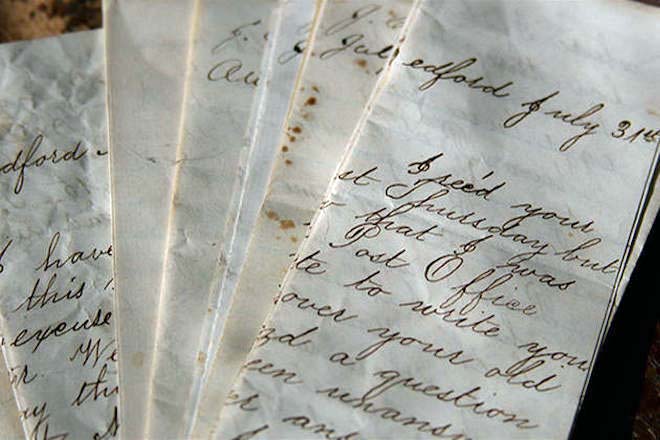 edford July 31st
I rec'd your
st Thursday but
that I was
Post Office
te to write you
over your old
d a question
een unans
er ans
J.
Au
J.
July
dford
I have
this
excuse
r. We
y thi